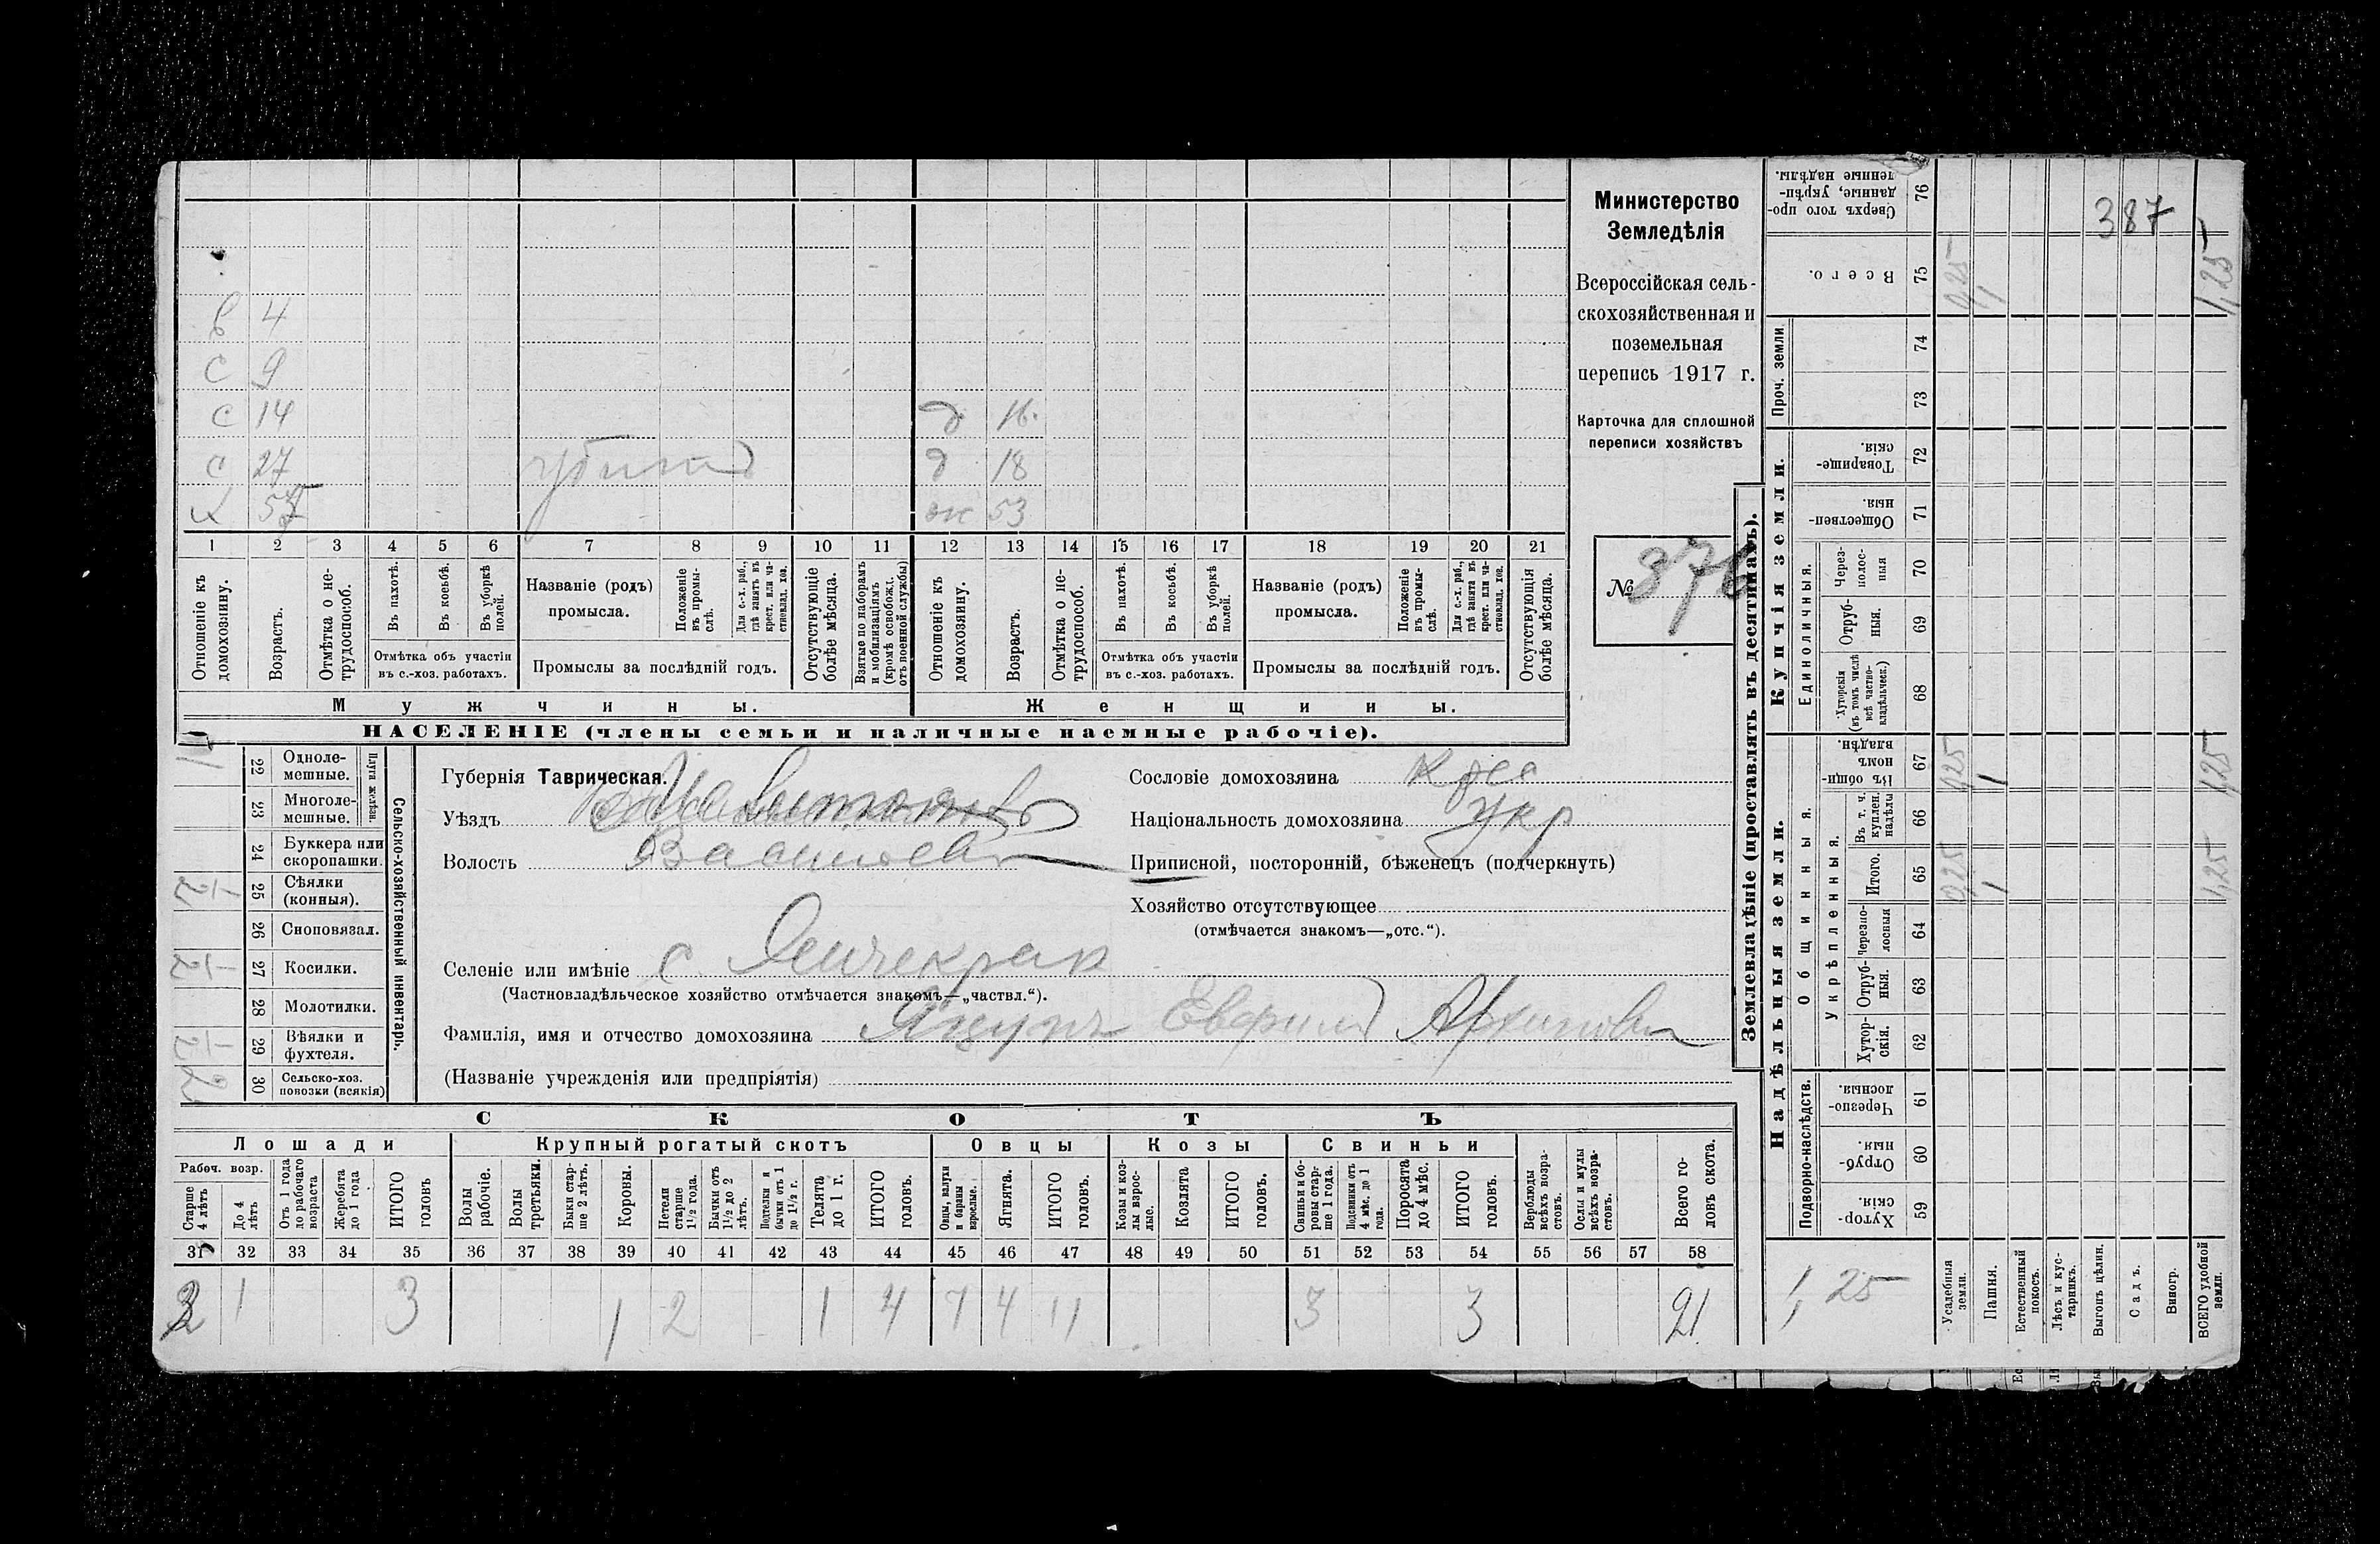 387
Министерство
Земледѣлія
Всероссійская сель-
скохозяйственная и
поземельная
перепись 1917 г.
Карточка для сплошной
переписи хозяйствъ
№ 376
4
с 9
с 14 д 16
с 27 д 18
ж 53
1 2 3 4 5 6 7 8 9 10 11 12 13 14 15 16 17 18 19 20 21
Отношеніе къ домохозяину.
Возрастъ.
Отмѣтка о не-трудоспособ.
Въ пахотѣ.
Въ косьбѣ.
Въ уборкѣ полей.
Отмѣтка объ участіи
въ с.-хоз. работахъ.
Названіе (родъ)
промысла.
Положеніе въ промы-слѣ.
Для с.-х. раб., гдѣ занятъ въ крест. или ча-стновлад. хоз.
Промыслы за послѣдній годъ.
Отсутствующіе болѣе мѣсяца.
Взятые по наборамъ и мобилизаціямъ (кромѣ освобожд. отъ военной службы)
Отношеніе къ домохозяину.
Возрастъ.
Отмѣтка о не-трудоспособ.
Въ пахотѣ.
Въ косьбѣ.
Въ уборкѣ полей.
Отмѣтка объ участіи
въ с.-хоз. работахъ.
Названіе (родъ)
промысла.
Положеніе въ промы-слѣ.
Для с.-х. раб., гдѣ занята въ крест. или ча-стновлад. хоз.
Промыслы за послѣдній годъ.
Отсутствующія болѣе мѣсяца.
Мужчины.
Женщины.
НАСЕЛЕНІЕ (члены семьи и наличные наемные рабочіе).
Сельско-хозяйственный инвентарь.
Плуги желѣзн
22 Одноле-мешные. 1
23 Многоле-мешные.
24 Буккера или скоропашки.
25 Сѣялки (конныя). 1/2
26 Сноповязал.
27 Косилки. 1/2
28 Молотилки.
29 Вѣялки и фухтеля. 1/2
30 Сельско-хоз. повозки (всякія) 2
Губернія Таврическая.
Уѣздъ
Волость Васильев
Селеніе или имѣніе с Янчекрак
(Частновладѣльческое хозяйство отмѣчается знакомъ—„частвл.“).
Фамилія, имя и отчество домохозяина Яцунъ Евфим Архипович
(Названіе учрежденія или предпріятія)
Сословіе домохозяина крес
Національность домохозяина укр
Приписной, посторонній, бѣженецъ (подчеркнуть)
Хозяйство отсутствующее
(отмѣчается знакомъ—„отс.“).
СКОТЪ
Лошади
Крупный рогатый скотъ
Овцы
Козы
Свиньи
Рабоч. возр.
Старше 4 лѣтъ
До 4 лѣтъ
Отъ 1 года до рабочаго возраста
Жеребята до 1 года
ИТОГО головъ
Волы рабочіе.
Волы третьяки.
Быки стар-ше 2 лѣтъ.
Коровы.
Петели старше 1½ года.
Бычки отъ 1½ до 2 лѣтъ.
Подтелки и бычки отъ 1 до 1½ г.
Телята до 1 г.
ИТОГО головъ.
Овцы, валухи и бараны взрослые.
Ягнята.
ИТОГО головъ.
Козы и коз-лы взрос-лые.
Козлята
ИТОГО головъ.
Свиньи и бо-ровы стар-ше 1 года.
Подсвинки отъ 4 мѣс. до 1 года.
Поросята до 4 мѣс.
ИТОГО головъ.
Верблюды всѣхъ возра-стовъ.
Ослы и мулы всѣхъ возра-стовъ.
Всего го-ловъ скота.
31 32 33 34 35 36 37 38 39 40 41 42 43 44 45 46 47 48 49 50 51 52 53 54 55 56 57 58
2 1 3 1 2 1 4 7 4 11 3 3 21
Землевладѣніе (проставлять въ десятинахъ).
Купчія земли.
Надѣльныя земли.
Сверхъ того про-данные, укрѣп-ленные надѣлы. 76
Всего. 75 0,25 1 1,25
Проч. земли
74
73
Товарище-скія. 72
Обществен-ныя. 71
Единоличныя.
Через-полос-ныя 70
Отруб-ныя. 69
Хуторскія (въ томъ числѣ всѣ частно-владѣльческ.) 68
Общинныя.
Въ общи-номъ владѣн. 67 0,25 1 1,25
Укрѣпленныя.
Въ т. ч. куплен. надѣлы 66
Итого. 65 0,25 1 1,25
Черезпо-лосныя 64
Отруб-ныя. 63
Хутор-скія. 62
Подворно-наслѣдств.
Черезпо-лосныя. 61
Отруб-ныя. 60
Хутор-скія. 59
1,25
Усадебныя земли.
Пашня.
Естественный покосъ.
Лѣсъ и кус-тарникъ.
Выгонъ цѣлин.
Садъ.
Виногр.
ВСЕГО удобной земли.